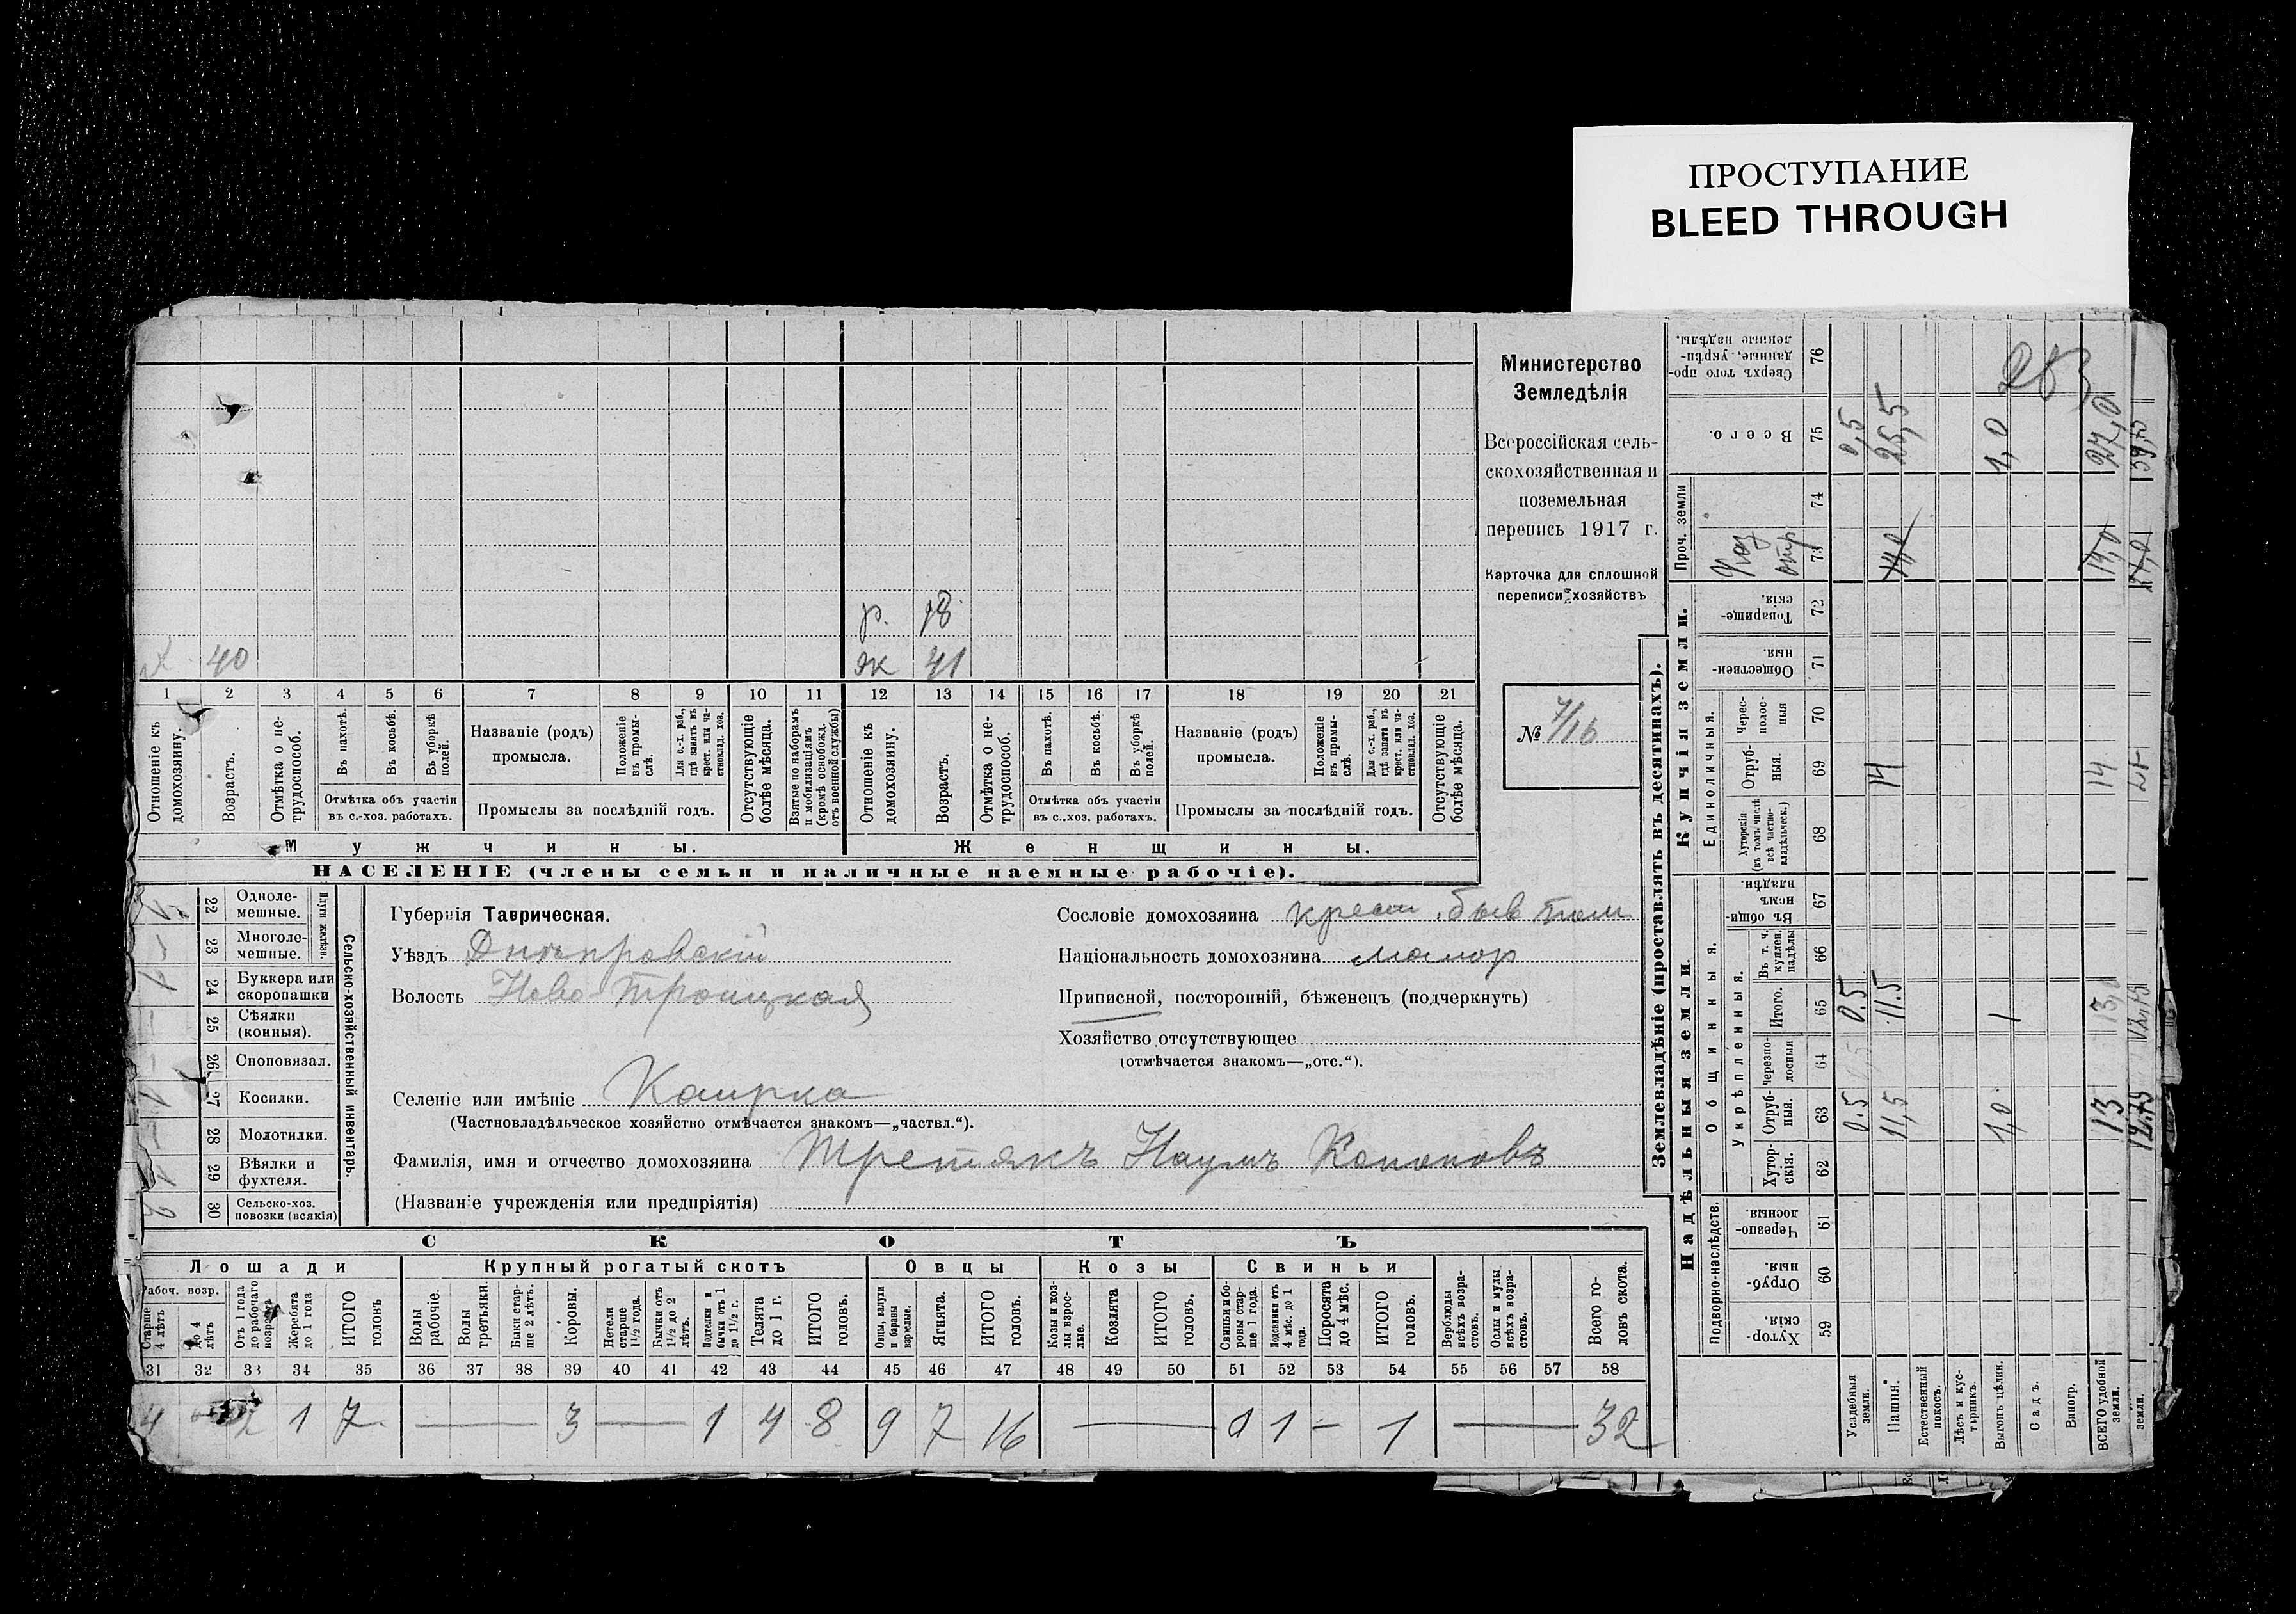 ПРОСТУПАНИЕ
BLEED THROUGH
Министерство
Земледѣлія
Всероссійская сель-
скохозяйственная и
поземельная
перепись 1917 г.
Карточка для сплошной
переписи хозяйствъ
№ 7/16
р. 18
40 ж 41
1 2 3 4 5 6 7 8 9 10 11 12 13 14 15 16 17 18 19 20 21
Отношеніе къ домохозяину.
Возрастъ.
Отмѣтка о не-трудоспособ.
Въ пахотѣ.
Въ косьбѣ.
Въ уборкѣ полей.
Отмѣтка объ участіи
въ с.-хоз. работахъ.
Названіе (родъ)
промысла.
Положеніе въ промы-слѣ.
Для с.-х. раб., гдѣ занятъ въ крест. или ча-ствовлад. хоз.
Промыслы за послѣдній годъ.
Отсутствующіе болѣе мѣсяца.
Взятые по наборамъ и мобилизаціямъ (кромѣ освобожд. отъ военной службы)
Отношеніе къ домохозяину.
Возрастъ.
Отмѣтка о не-трудоспособ.
Въ пахотѣ.
Въ косьбѣ.
Въ уборкѣ полей.
Отмѣтка объ участіи
въ с..хоз. работахъ.
Названіе (родъ)
промысла.
Положеніе въ промы-слѣ.
Для с.-х. раб., гдѣ занята въ крест. или ча-ствовлад. хоз.
Промыслы за послѣдній годъ.
Отсутствующіе болѣе мѣсяца.
Мужчины. Женщины.
НАСЕЛЕНІЕ (члены семьи и наличные наемные рабочіе).
Сельско-хозяйственный инвентарь.
Плуги желѣзн.
22 Одноле-мешные.
23 Многоле-мешные.
24 Буккера или скоропашки
25 Сѣялки (конныя).
26 Сноповязал.
27 Косилки.
28 Молотилки.
29 Вѣялки и фухтеля.
30 Сельско-хоз. повозки (всякія)
Губернія Таврическая.
Уѣздъ Днѣпровскій
Волость Ново-Троицкая
Селеніе или имѣніе Каирка
(Частновладѣльческое хозяйство отмѣчается знакомъ—„частвл.“).
Фамилія, имя и отчество домохозяина Третякъ Наумъ Кононовъ
(Названіе учрежденія или предпріятія)
Сословіе домохозяина крест. быв
Національность домохозяина малор
Приписной, посторонній, бѣженецъ (подчеркнуть)
Хозяйство отсутствующее
(отмѣчается знакомъ—„отс.“).
СКОТЪ
Лошади Крупный рогатый скотъ Овцы Козы Свиньи
Рабоч. возр.
Старше 4 лѣтъ
до 4 лѣтъ
Отъ 1 года до рабочаго возраста
Жеребята до 1 года
ИТОГО головъ
Волы рабочіе.
Волы третьяки.
Быки стар-ше 2 лѣтъ.
Коровы.
Нетели старше 1½ года.
Бычки отъ 1½ до 2 лѣтъ.
Подтелки и бычки отъ 1 до 1½ г.
Телята до 1 г.
ИТОГО головъ.
Овцы, валухи и бараны взрослые.
Ягнята.
ИТОГО головъ.
Козы и коз-лы взрос-лые.
Козлята
ИТОГО головъ.
Свиньи и бо-ровы стар-ше 1 года.
Подсвинки отъ 4 мѣс. до 1 года.
Поросята до 4 мѣс.
ИТОГО головъ.
Верблюды всѣхъ возра-стовъ.
Ослы и мулы всѣхъ возра-стовъ.
Всего го-ловъ скота.
31 32 33 34 35 36 37 38 39 40 41 42 43 44 45 46 47 48 49 50 51 52 53 54 55 56 57 58
4 2 1 7 — 3 — 1 4 8 9 7 16 — 1 — 1 — 32
Землевладѣніе (проставлять въ десятинахъ).
Надѣльныя земли.
Купчія земли.
Проч. земли
Подворно-наслѣдств.
Общинныя.
Укрѣпленныя.
Единоличныя.
Хутор-скія. 59
Отруб-ныя. 60
Черезпо-лосныя 61
Хутор-скія. 62
Отруб-ныя. 63
Черезпо-лосныя 64
Итого. 65
Въ т. ч. куплен. надѣлы 66
Въ общи-нномъ владѣн. 67
Хуторскія (въ томъ числѣ всѣ частно-владѣльческ.) 68
Отруб-ныя. 69
Черес-полос-ныя 70
Обществен-ныя. 71
Товарище-скія. 72
73
74
Всего. 75
Сверхъ того про-данные, укрѣп-ленные надѣлы. 76
Усадебныя земли. 0.5 0.5 0,5
Пашня. 11,5 11.5 14 14,0 25,5
Естественный покосъ.
Лѣсъ и кус-тарникъ.
Выгонъ цѣлин. 1,0 1 1,0
Садъ.
Виногр.
ВСЕГО удобной земли. 13 13,0 14 14,0 27,0
земли. 12.75 39,75